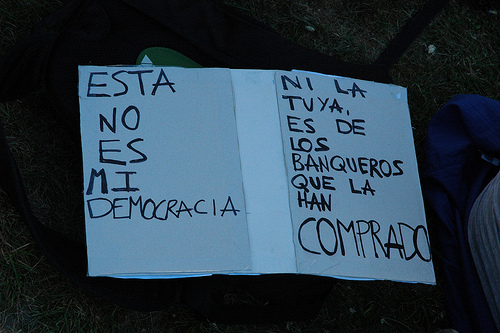 ESTA
NO
ES
MI
DEMOCRACIA
NI LA
TUYA,
ES DE
LOS
BANQUEROS
QUE LA
HAN
COMPRADO